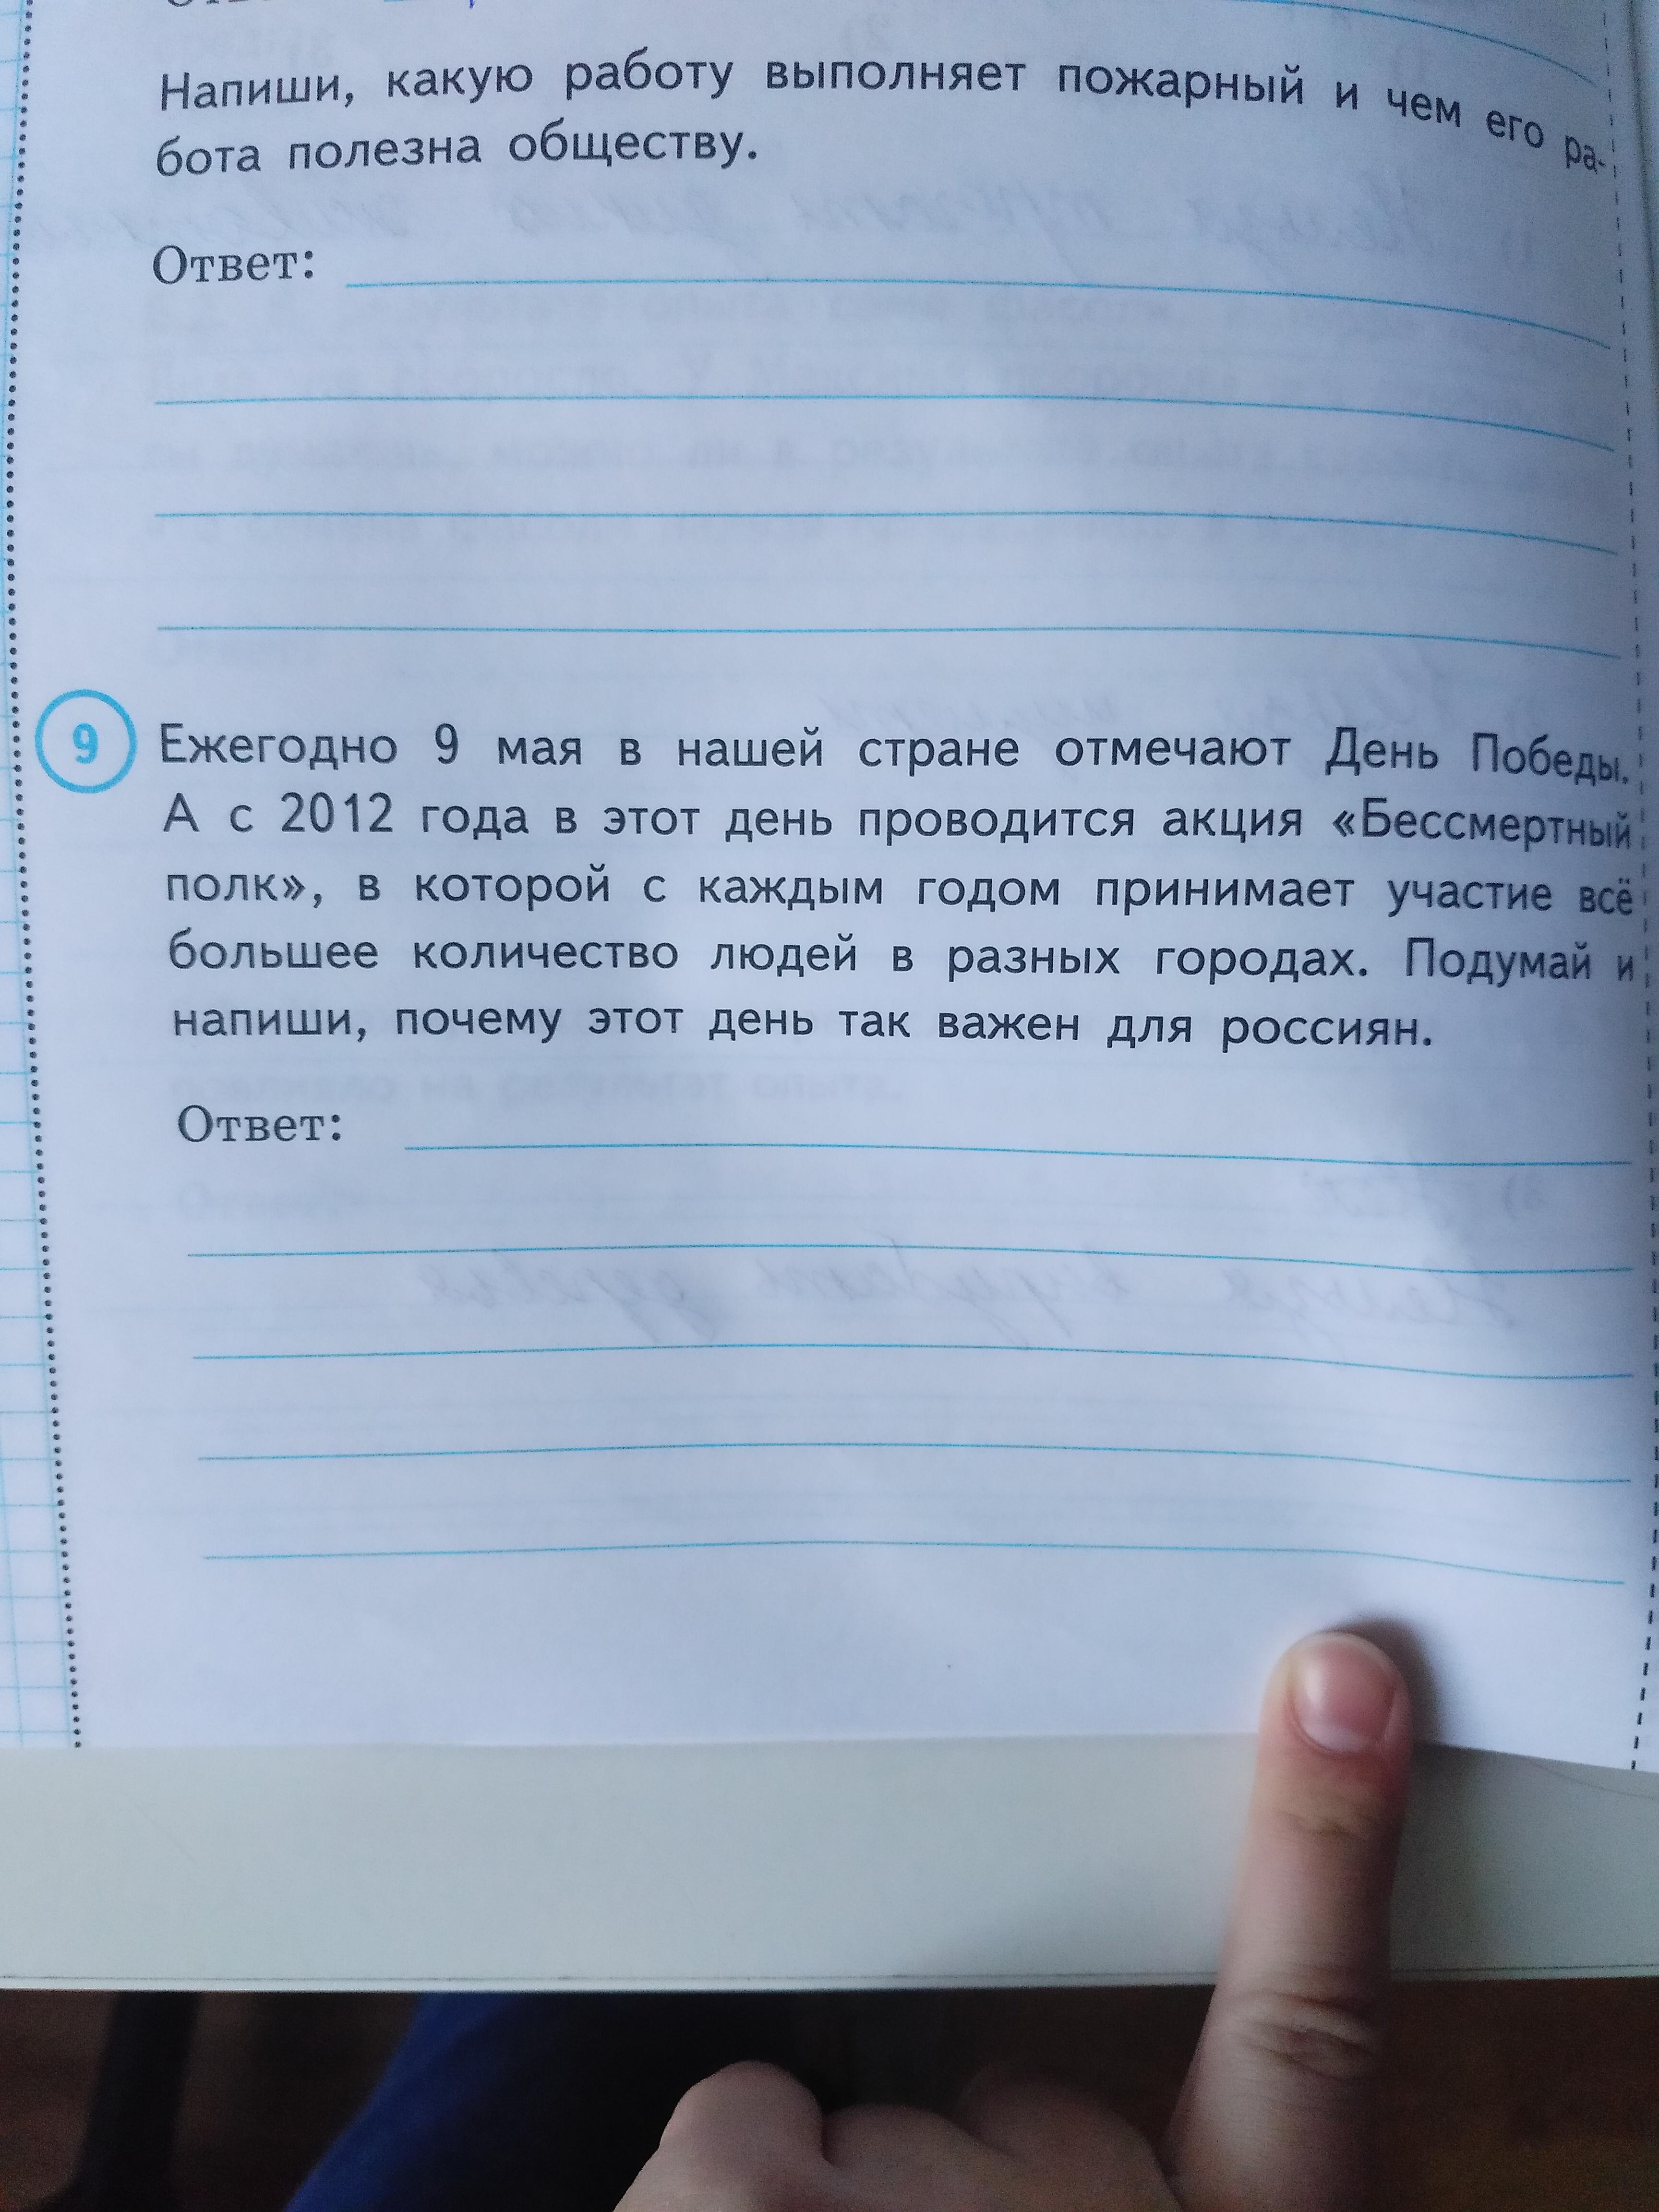 Напиши, какую работу выполняет пожарный и чем его ра-
бота полезна обществу.
Ответ:
9 Ежегодно 9 мая в нашей стране отмечают День Победы.
А с 2012 года в этот день проводится акция «Бессмертный
полк», в которой с каждым годом принимает участие всё
большее количество людей в разных городах. Подумай и
напиши, почему этот день так важен для россиян.
Ответ: